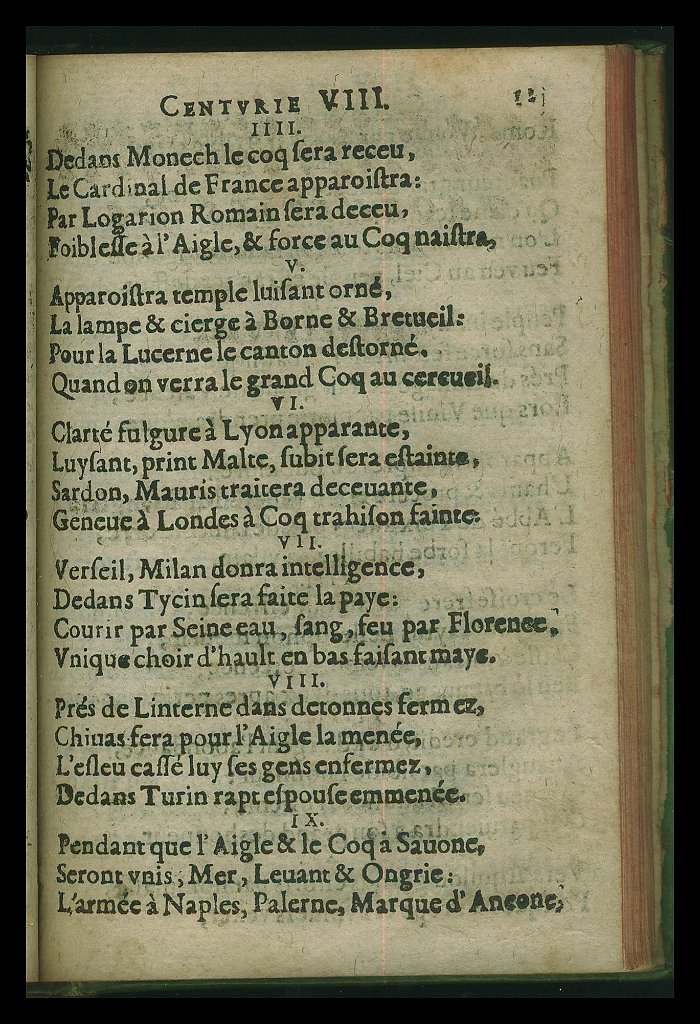 CENTVRIE VIII.
IIII.
Dedans Monech le coq ſera receu,
Le Cardinal de France apparoiſtra:
Par Logarion Romain ſera deceu,
Foibleſſe à l'Aigle, & force au Coq naiſtra,
V.
Apparoiſtra temple luiſant orné,
La lampe & cierge à Borne & Bretueil:
Pour la Lucerne le canton deſtorné.
Quand on verra le grand Coq au cercueil.
VI.
Clarté fulgure à Lyon apparante,
Luyſant, print Malte, ſubit ſera eſtainte,
Sardon, Mauris traitera deceuante,
Geneue à Londes à Coq trahiſon fainte.
VII.
Verſeil, Milan donra intelligence,
Dedans Tycin ſera faite la paye:
Courir par Seine eau, ſang, feu par Florence.
Vnique choir d'hault en bas faiſant maye.
VIII.
Prés de Linterne dans detonnes fermez,
Chiuas fera pour l'Aigle la menée,
L'eſleu caſſé luy ſes gens enfermez,
Dedans Turin rapt eſpouſe emmenée.
IX.
Pendant que l'Aigle & le Coq à Sauone,
Seront vnis, Mer, Leuant & Ongrie:
L'armée à Naples, Palerne, Marque d'Ancone,